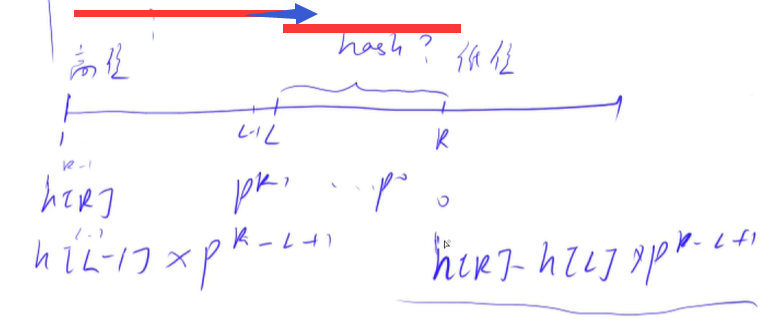 hash?
高位 低位
1 L-1 L R
R-1
h[R] p^R-1 ... p^0 0
L-1
h[L-1] × p^R-L+1 h[R] - h[L] × p^R-L+1